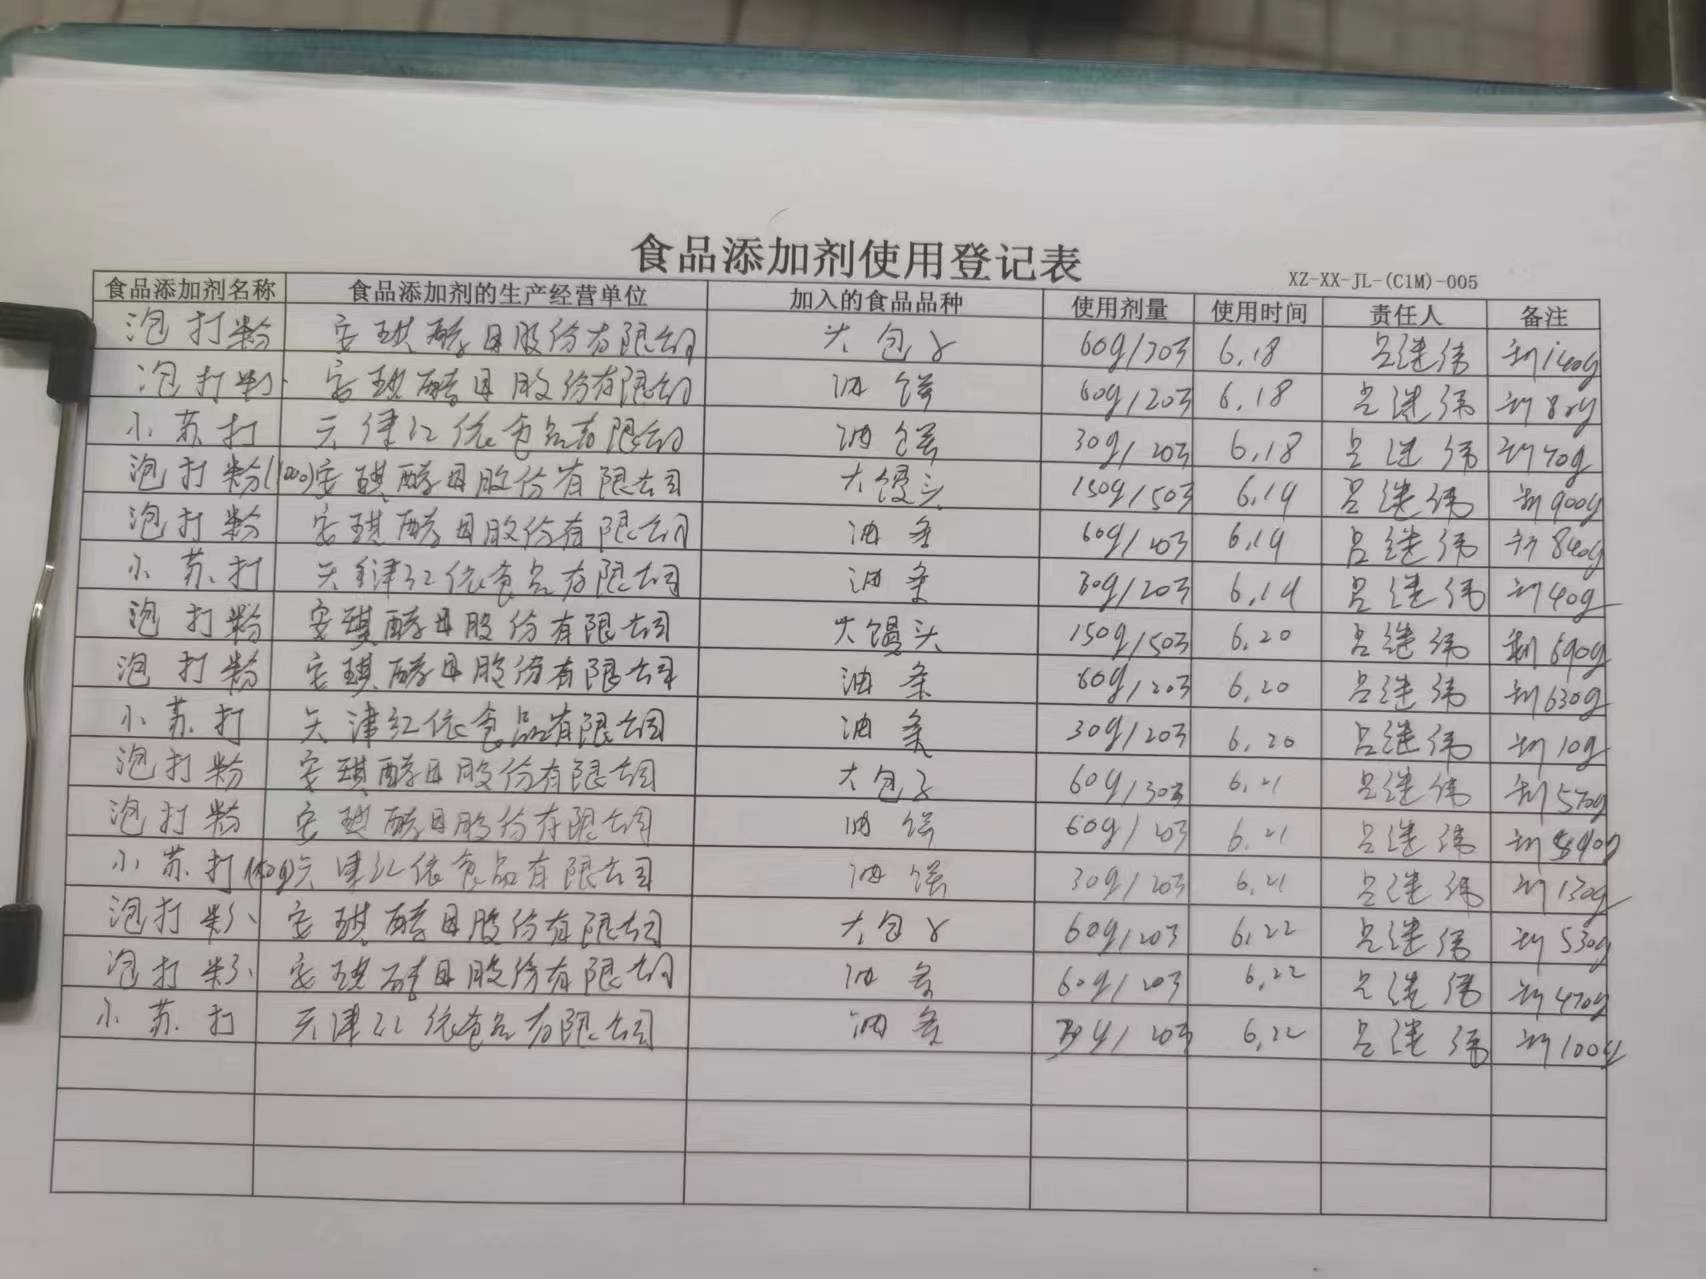 食品添加剂使用登记表
XZ-XX-JL-(C1M)-005
食品添加剂名称 食品添加剂的生产经营单位 加入的食品品种 使用剂量 使用时间 责任人 备注
泡打粉 安琪酵母股份有限公司 大包子 60g/20斤 6.18 吕继伟 剩140g
泡打粉 安琪酵母股份有限公司 油饼 60g/20斤 6.18 吕继伟 剩80g
小苏打 天津红依食品有限公司 油饼 30g/20斤 6.18 吕继伟 剩70g
泡打粉 安琪酵母股份有限公司 大馒头 150g/50斤 6.19 吕继伟 剩900g
泡打粉 安琪酵母股份有限公司 油条 60g/20斤 6.19 吕继伟 剩840g
小苏打 天津红依食品有限公司 油条 30g/20斤 6.19 吕继伟 剩40g
泡打粉 安琪酵母股份有限公司 大馒头 150g/50斤 6.20 吕继伟 剩690g
泡打粉 安琪酵母股份有限公司 油条 60g/20斤 6.20 吕继伟 剩630g
小苏打 天津红依食品有限公司 油条 30g/20斤 6.20 吕继伟 剩10g
泡打粉 安琪酵母股份有限公司 大包子 60g/30斤 6.21 吕继伟 剩570g
泡打粉 安琪酵母股份有限公司 油饼 60g/20斤 6.21 吕继伟
小苏打 天津红依食品有限公司 油饼 30g/20斤 6.21 吕继伟 剩130g
泡打粉 安琪酵母股份有限公司 大包子 60g/20斤 6.22 吕继伟 剩530g
泡打粉 安琪酵母股份有限公司 油条 60g/20斤 6.22 吕继伟 剩470g
小苏打 天津红依食品有限公司 油条 30g/20斤 6.22 吕继伟 剩100g